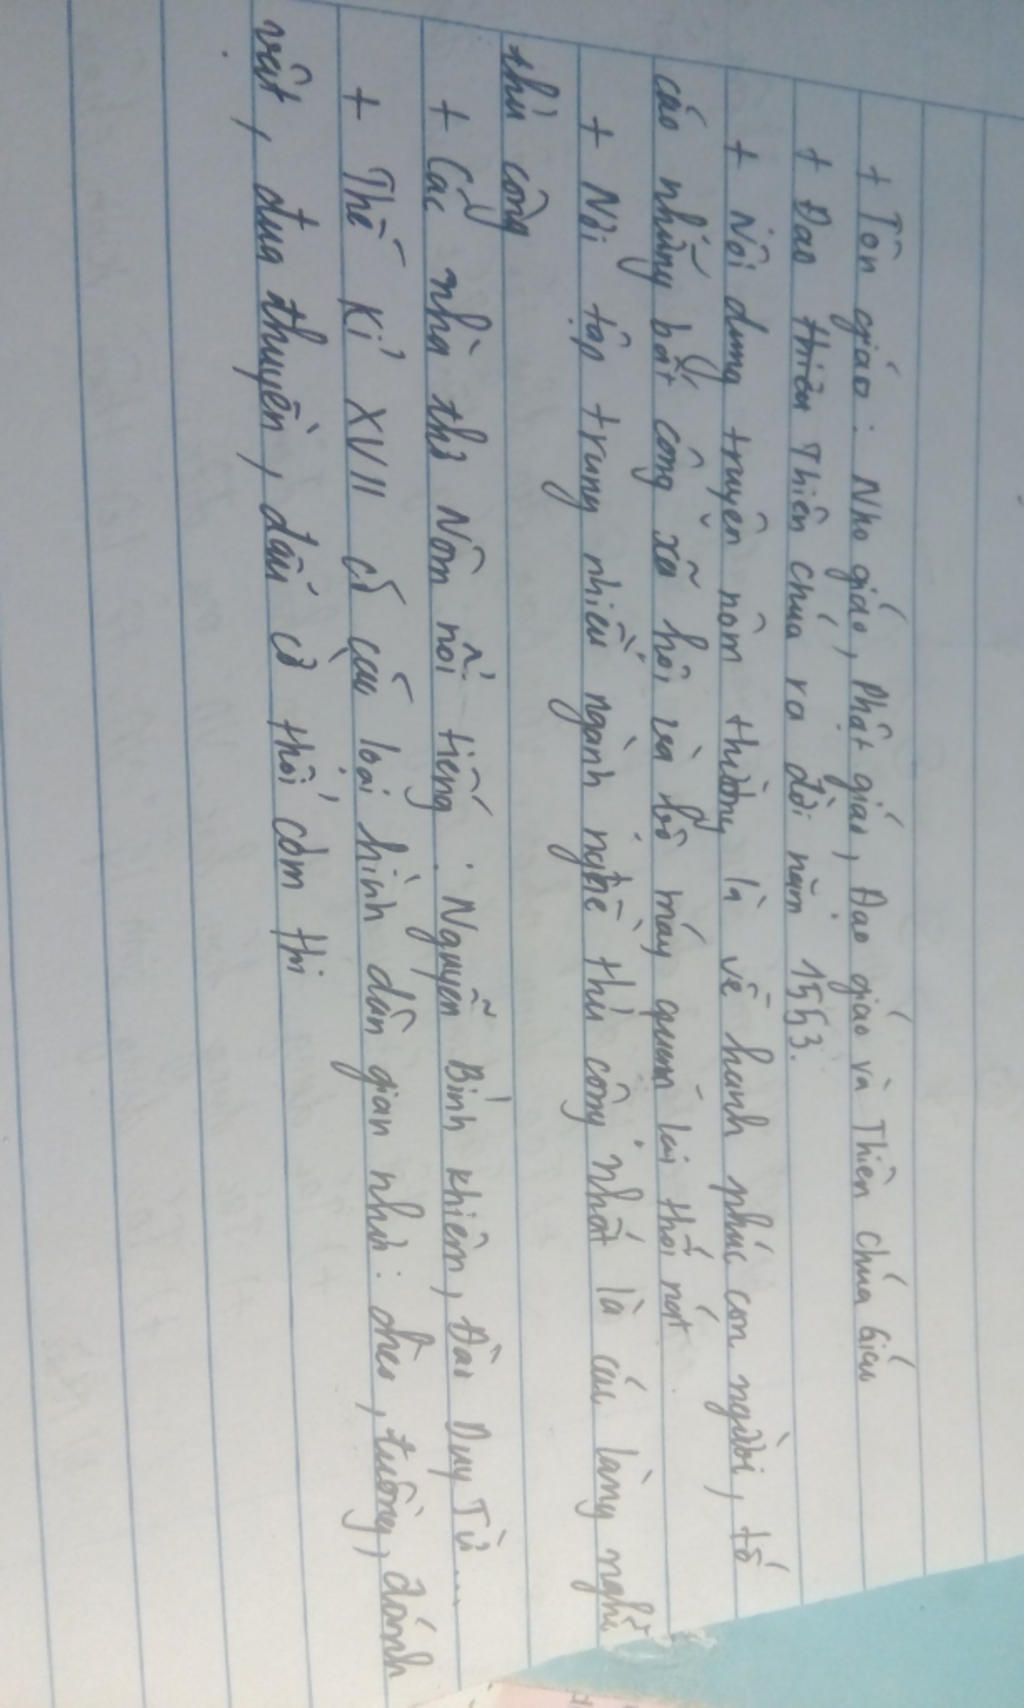 + Tôn giáo: Nho giáo, Phật giáo, Đạo giáo và Thiên chúa Giáo
+ Đạo thiêu Thiên chúa ra đời năm 1553.
+ Nội dung truyện nôm thường là về hạnh phúc con người, tố
cáo những bất công xã hội và bộ máy quan lại thối nát
+ Nơi tập trung nhiều ngành nghề thủ công nhất là các làng nghề
thủ công
+ Các nhà thơ Nôm nổi tiếng: Nguyễn Bỉnh khiêm, Đào Duy Từ...
+ Thế kỉ XVII có các loại hình dân gian như: chèo, tuồng, đánh
vật, đua thuyền, đấu cờ thổi cơm thi